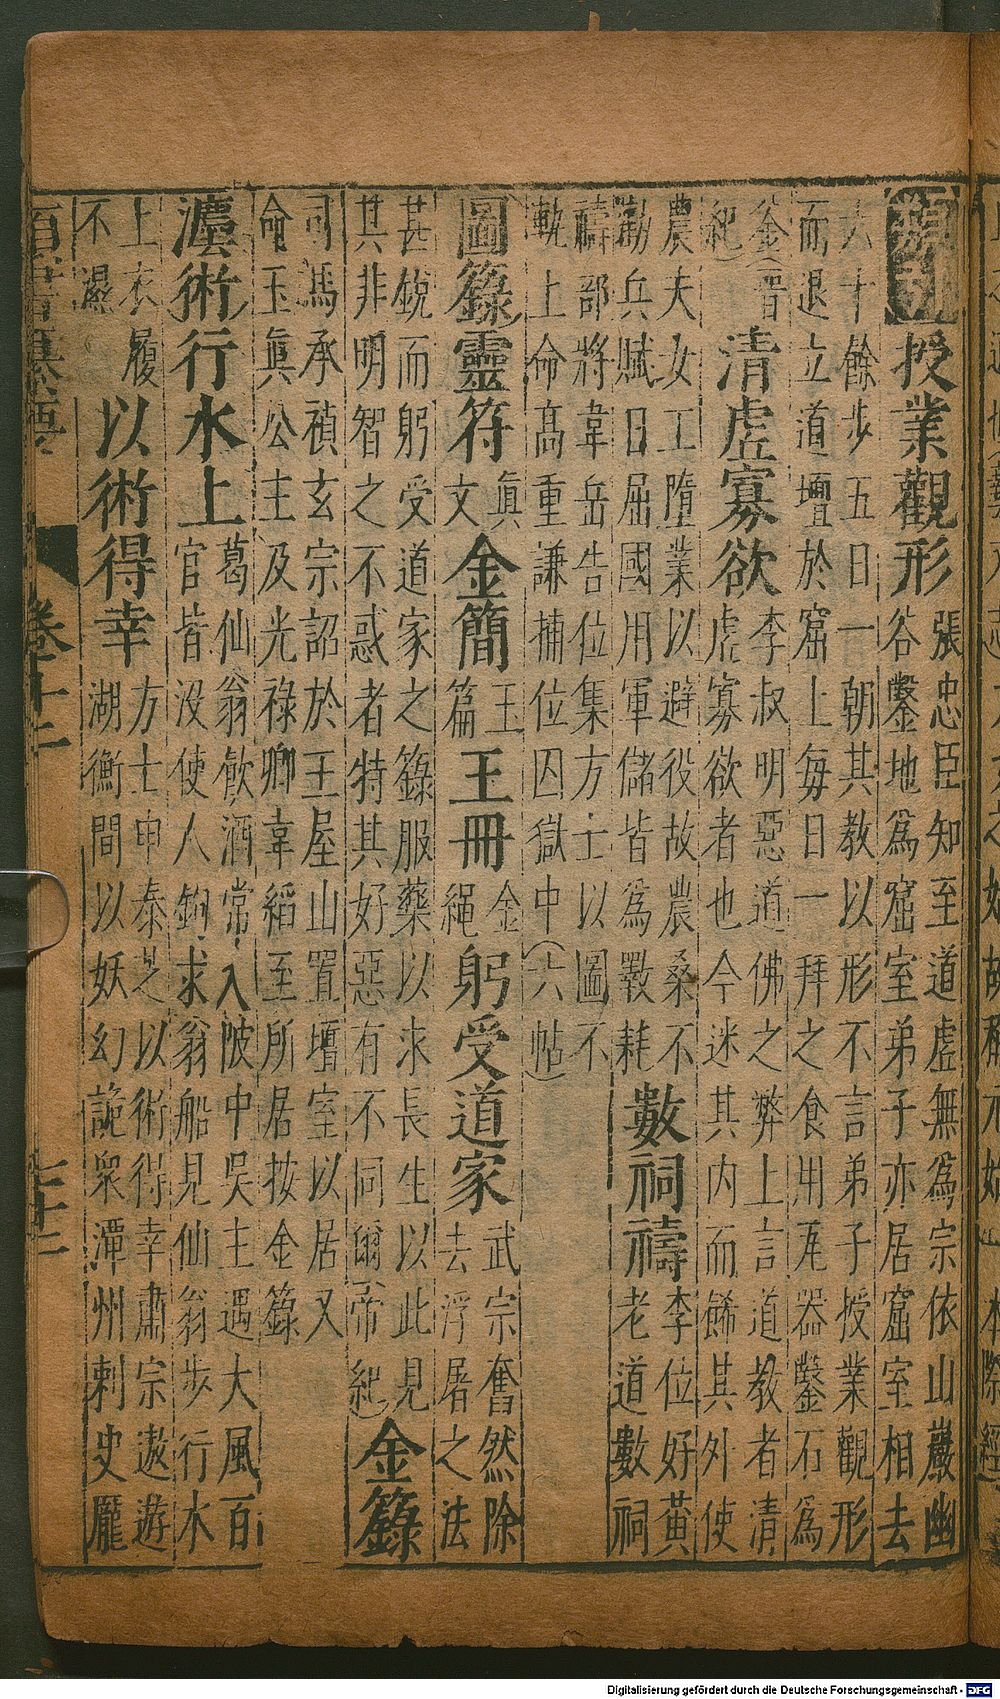 授業觀形 張忠臣知至道虛無爲宗依山巖幽
谷鑿地爲窟室弟子亦居窟室相去
六十餘步五日一朝其教以形不言弟子授業觀形
而退立道壇於窟上每日一拜之食用瓦器鑿石爲
釜(晋
紀) 清虛寡欲 李叔明惡道佛之弊上言道教者清
虛寡欲者也今迷其内而餙其外使
農夫女工墮業以避役故農桑不
勸兵賦日屈國用軍儲皆爲斁耗 數祠禱 李位好黄
老道數祠
禱部將韋岳告位集方士以圖不
軌上命高重謙捕位囚獄中(六帖)
圖籙靈符 真文 金簡 玉篇 王冊 金繩 躬受道家 武宗奮然除
去浮屠之法
甚銳而躬受道家之籙服藥以求長生以此見
其非明智之不惑者特其好惡有不同爾(帝紀) 金籙
司馬承禎玄宗詔於王屋山置壇室以居又
命玉真公主及光祿卿韋縚至所居按金籙
術行水上 葛仙翁飲酒常入陂中吳主遇大風百
官皆没使人鉤求翁船見仙翁步行水
上衣履
不濕 以術得幸 方士申泰芝以術得幸肅宗遨遊
湖衡間以妖幻詭衆潭州刺史龐
卷十二
七十二
Digitalisierung gefördert durch die Deutsche Forschungsgemeinschaft - DFG